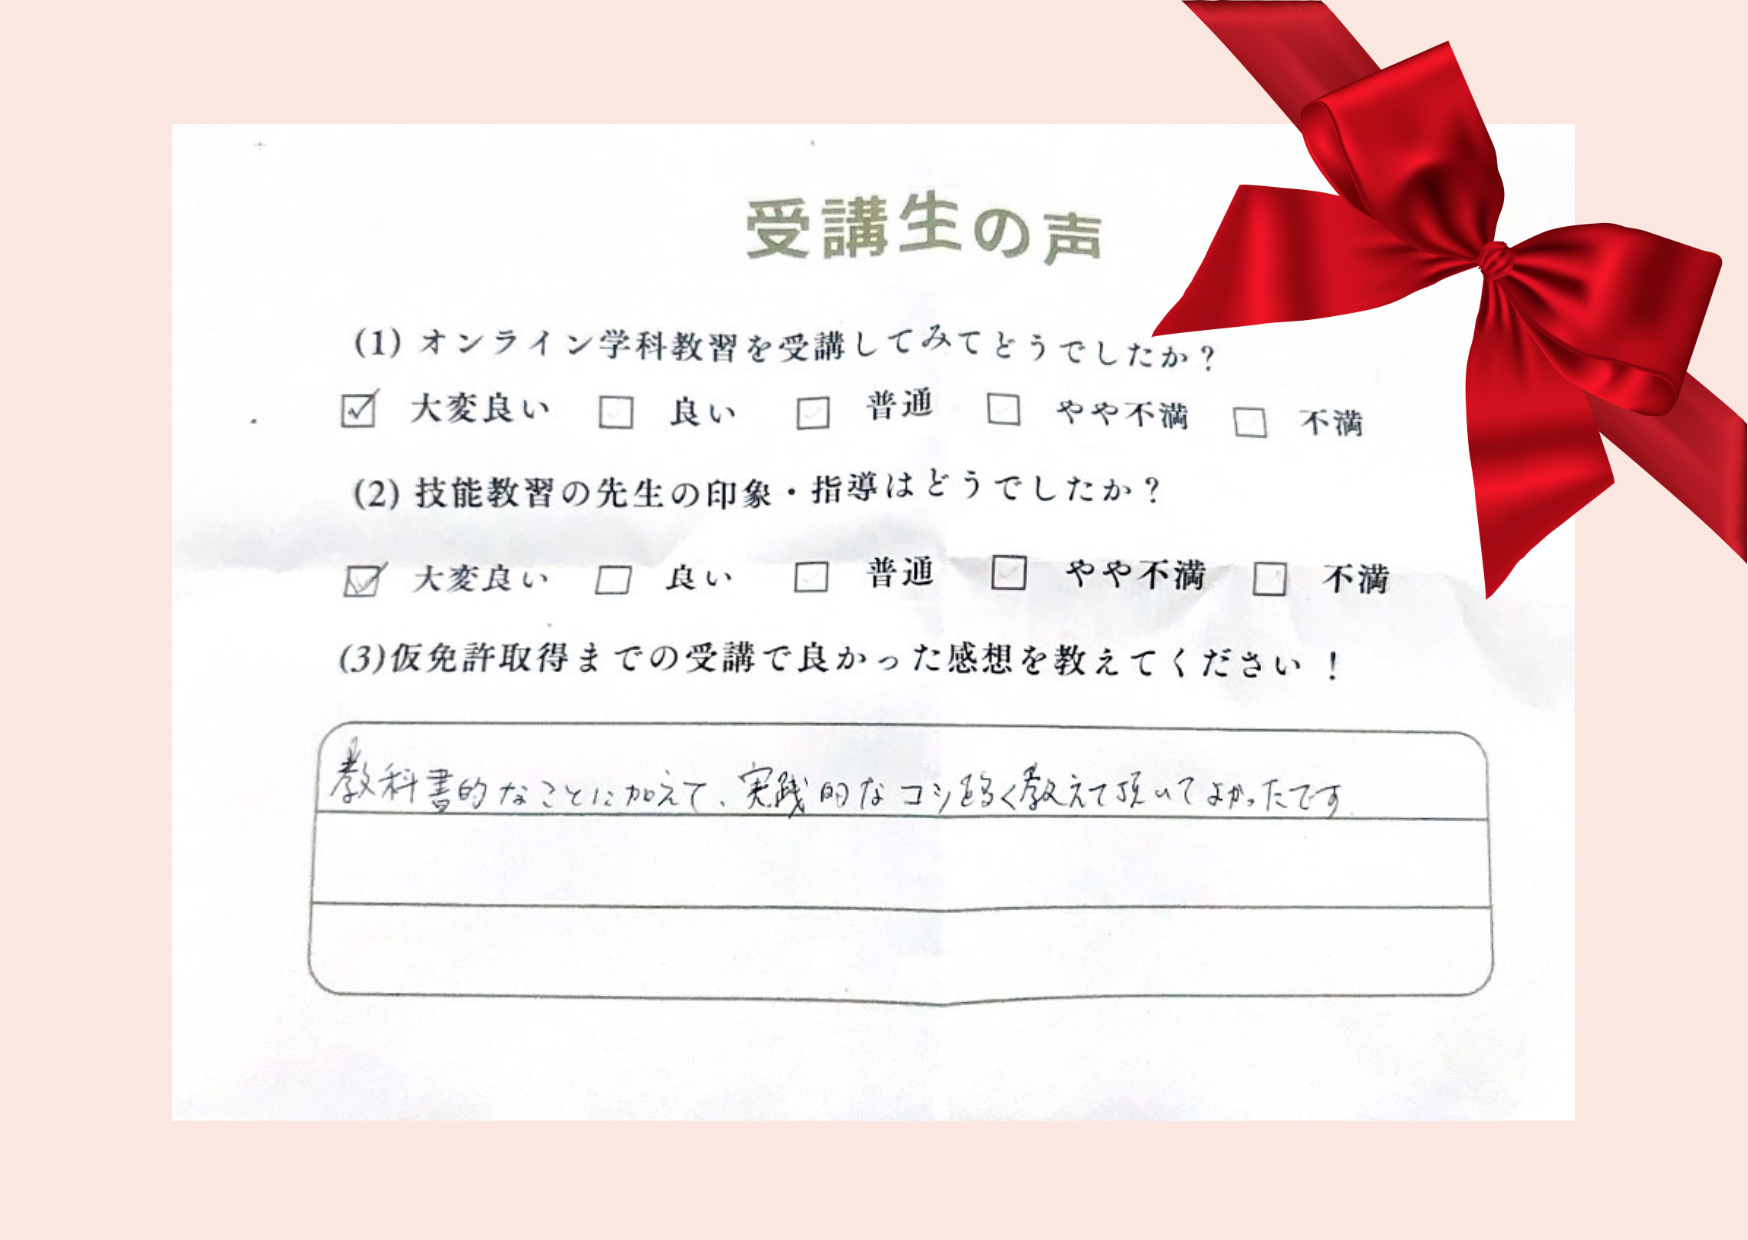 受講生の声
(1) オンライン学科教習を受講してみてどうでしたか？
☑ 大変良い □ 良い □ 普通 □ やや不満 □ 不満
(2) 技能教習の先生の印象・指導はどうでしたか？
☑ 大変良い □ 良い □ 普通 □ やや不満 □ 不満
(3)仮免許取得までの受講で良かった感想を教えてください！
教科書的なことに加えて、実践的なコツ 教えて頂いてよかったです